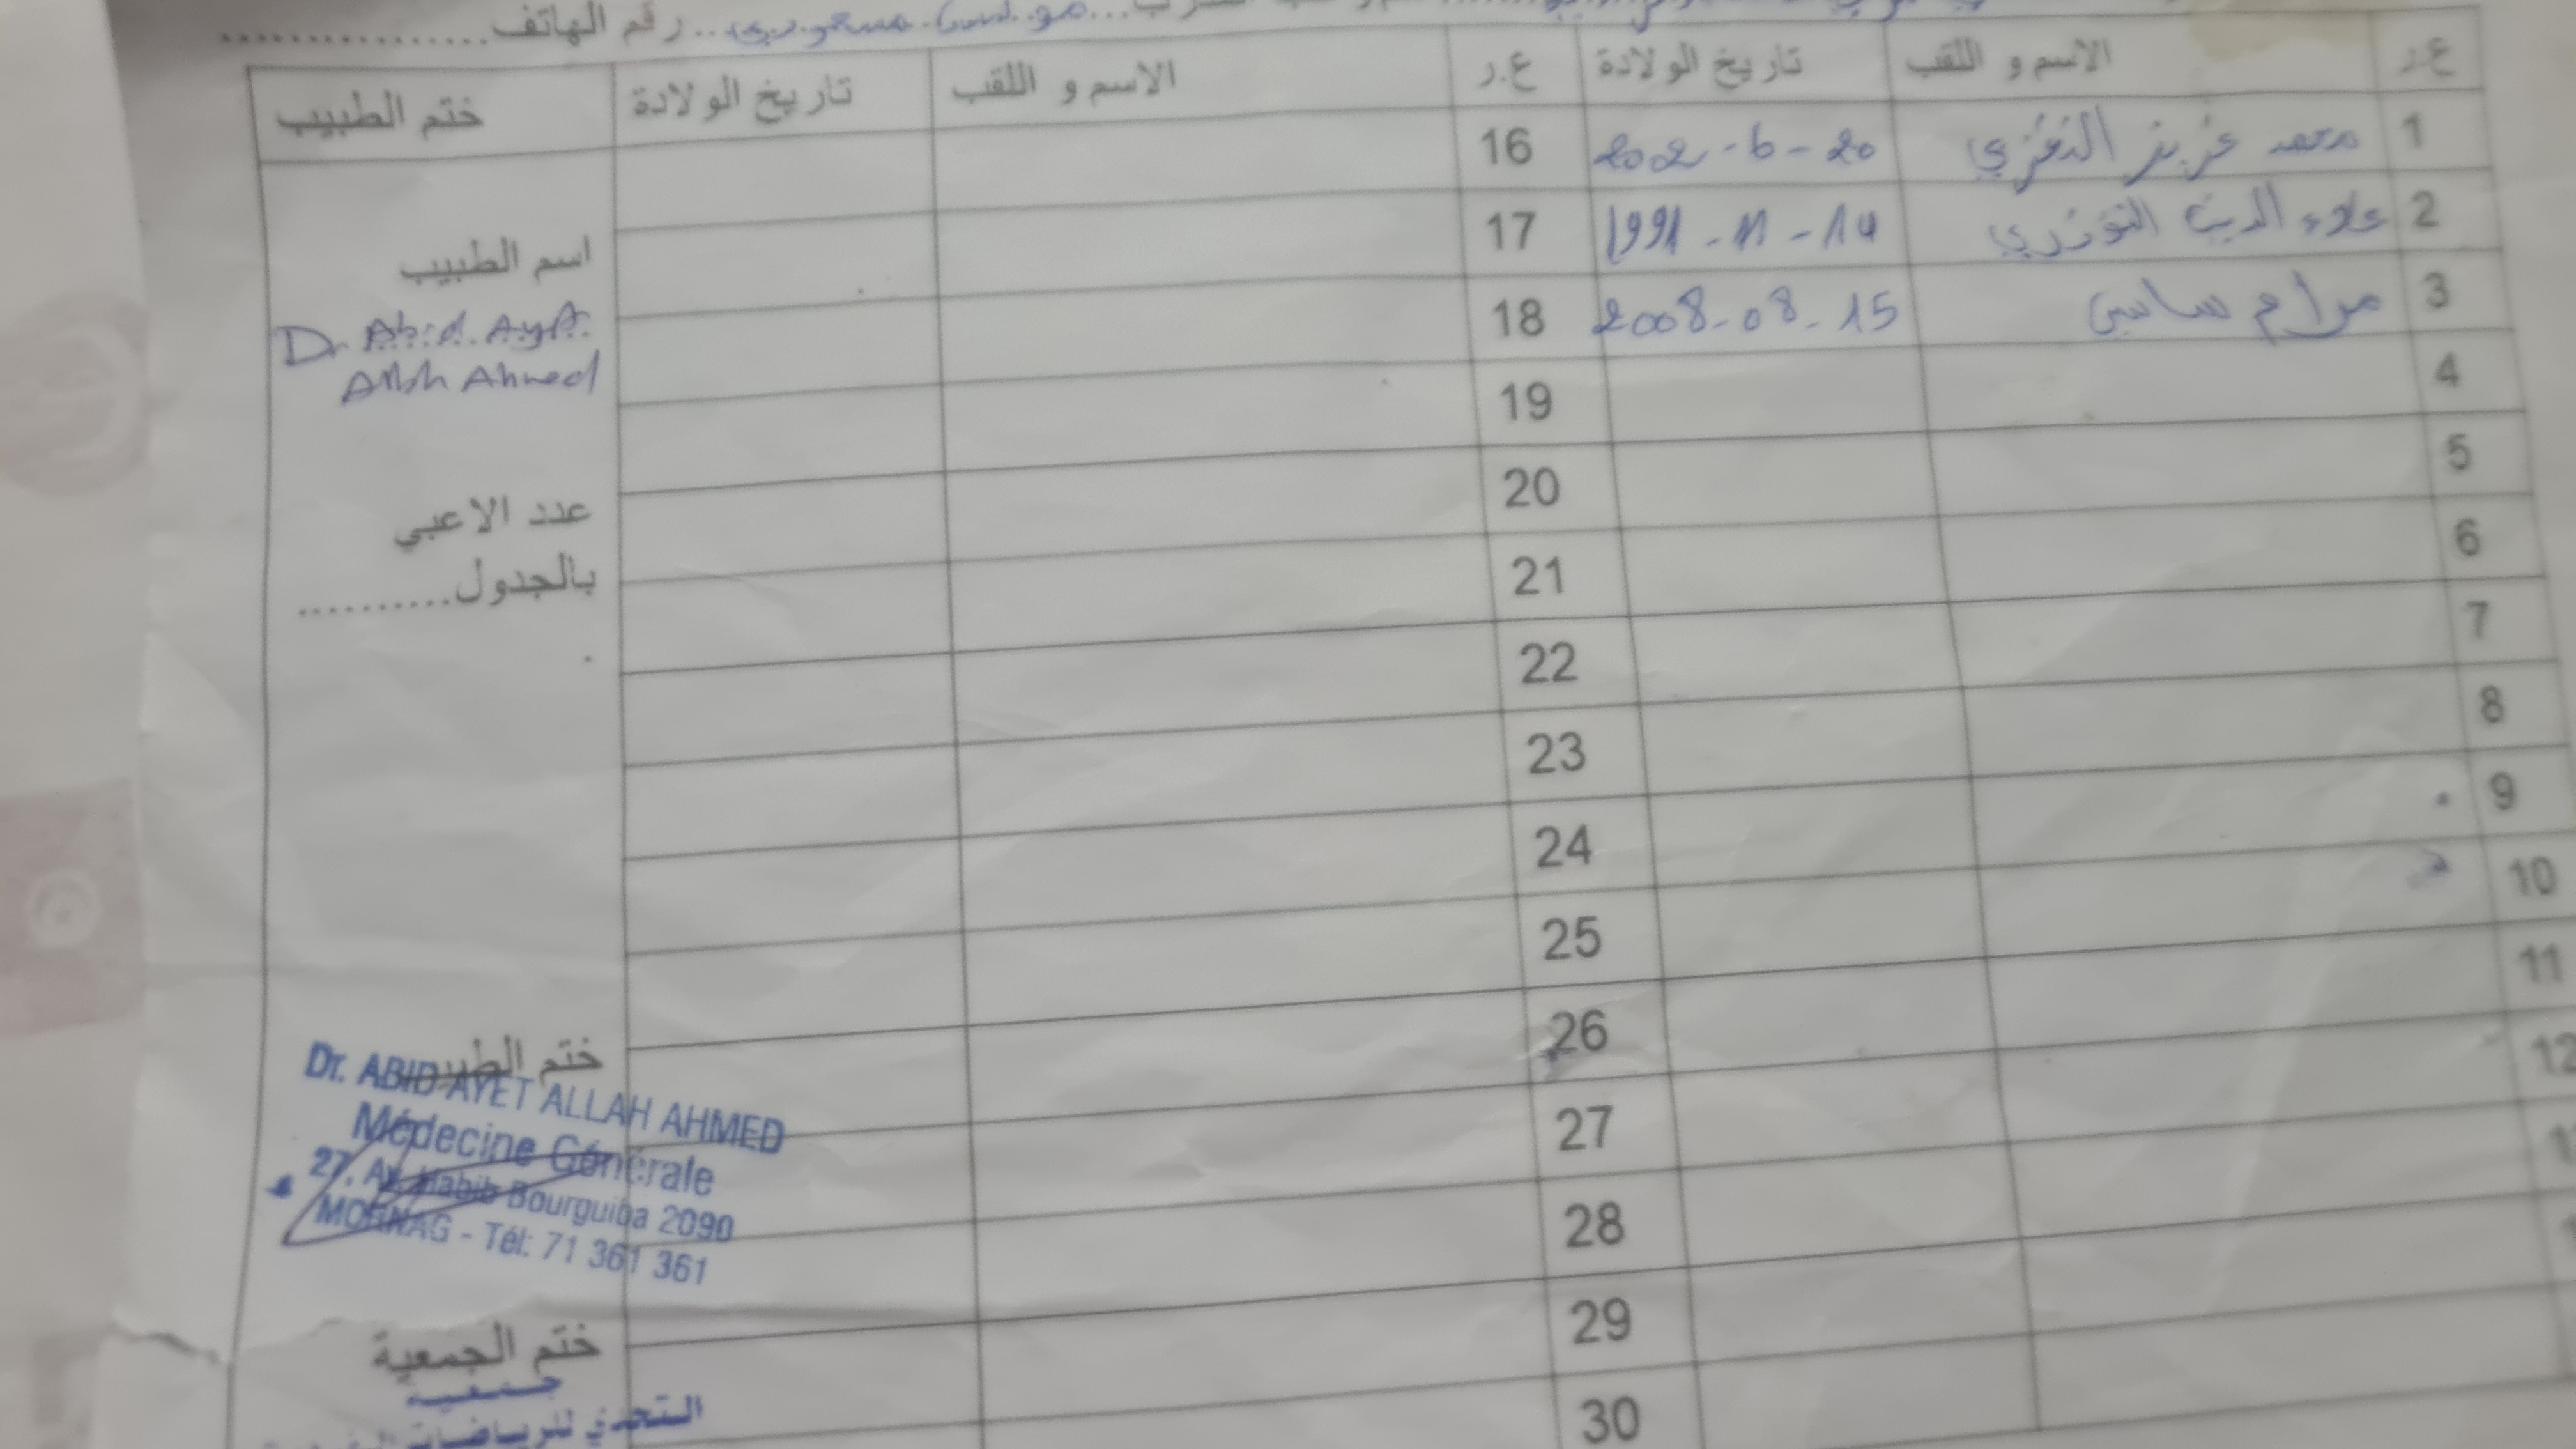 رقم الهاتف................
ع.ر الاسم و اللقب تاريخ الولادة ع.ر الاسم و اللقب تاريخ الولادة ختم الطبيب
1 محمد عزيز النفزي 20-6-2002 16
2 علاء الدين التوزري 14-11-1991 17
3 مرام ساسي 15-08-2008 18
4 19
5 20
6 21
7 22
8 23
9 24
10 25
11 26
12 27
28
29
30
اسم الطبيب
Dr Abid Ayet
Allah Ahmed
عدد الاعبي
بالجدول..........
.
ختم الطبيب
Dr. ABID AYET ALLAH AHMED
Médecine Générale
27, Av. Habib Bourguiba 2090
MORNAG - Tél: 71 361 361
ختم الجمعية
جمعية
التحدي للرياضات